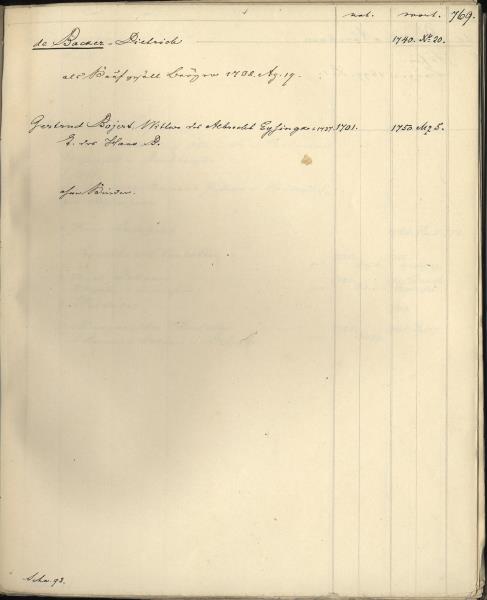 nat. mort. 769.
de Backer - Dietrich 1740. No. 20.
als Kaufgesell Bürger 1708. Ag. 19.
Gertrud Bojert, Wittwe des Albrecht Eysingk 1701. 1750 Mz 5.
T. des Hans B.
ohne Kinder.